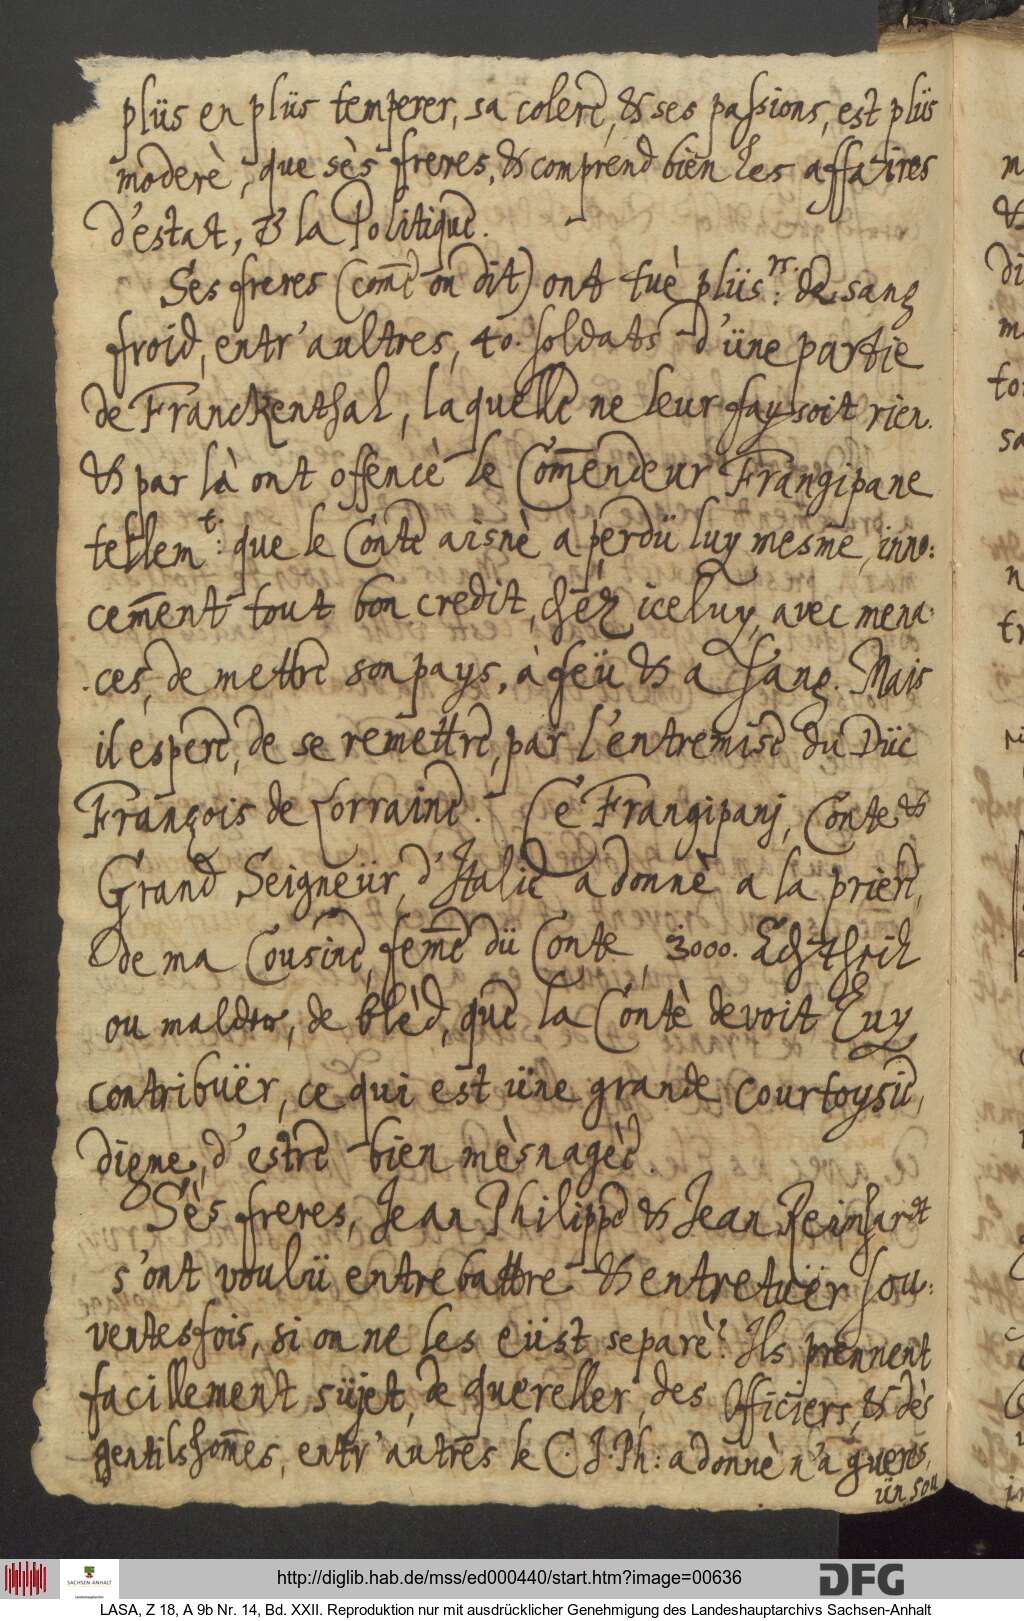 plüs en plüs temperer, sa colere, & ses passions, est plüs
moderè, que sès freres, & comprend bien les affaires
d'estat, & la Politique.
Ses freres (com̄e on dit) ont tuè plüs:rs. de sang
froid, entr'aultres, 40. soldats d'üne partie
de Franckenthal, laquelle ne leur faysoit rien.
& par là ont offencè le Com̄endeur Frangipane
tellemt: que le Conte aisnè a perdü luy mesme, inno:
cem̄ent tout bon credit, chéz iceluy, avec mena:
ces, de mettre son pays, à feü & a sang. Mais
il espere, de se remettre, par l'entremise du Düc
François de Lorraine. Ce Frangipanj, Conte &
Grand Seigneür, d'Italie a donnè a la priere,
de ma Cousine, fem̄e dü Conte, 3000. Achtheil
ou maldror, de blèd, que la Contè devoit Luy
contribuër, ce qui est üne grande courtoysie,
digne, d'estre bien mèsnagèe.
Sès freres, Jean Philippe & Jean Reinhardt
s'ont voulü entrebattre & entretuër sou:
ventesfois, si on ne les eüst separè? Ils prennent
facillement süjet, de quereller, des Officiers, & dès
gentilshom̄es, entr'autres le C. J. Ph: a donnè n'a gueres,
ün sou
http://diglib.hab.de/mss/ed000440/start.htm?image=00636
SACHSEN-ANHALT
Landeshauptarchiv
DFG
LASA, Z 18, A 9b Nr. 14, Bd. XXII. Reproduktion nur mit ausdrücklicher Genehmigung des Landeshauptarchivs Sachsen-Anhalt